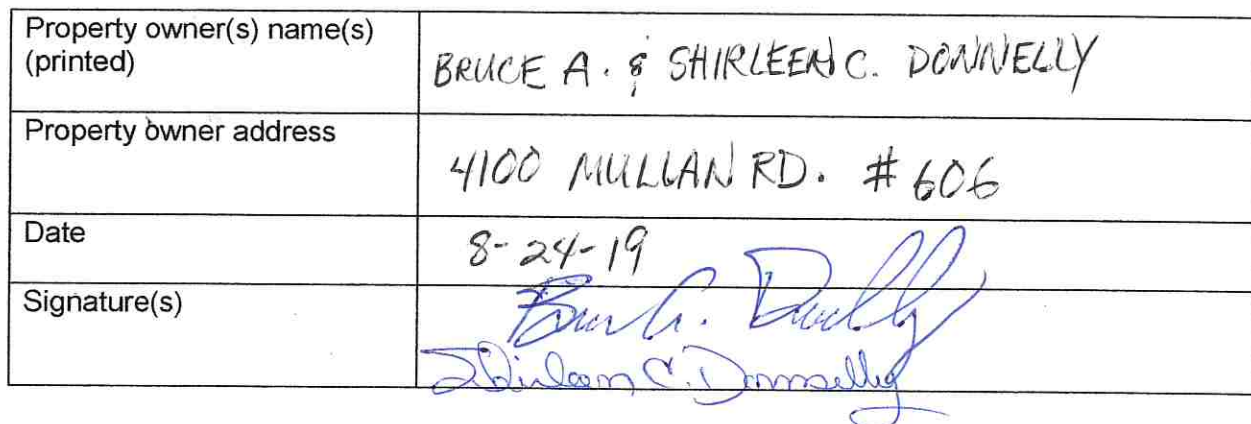 Property owner(s) name(s)
(printed)
BRUCE A. & SHIRLEEN C. DONNELLY
Property owner address
4100 MULLAN RD. #606
Date
8-24-19
Signature(s)
Bruce A. Donnelly
Shirleen C. Donnelly